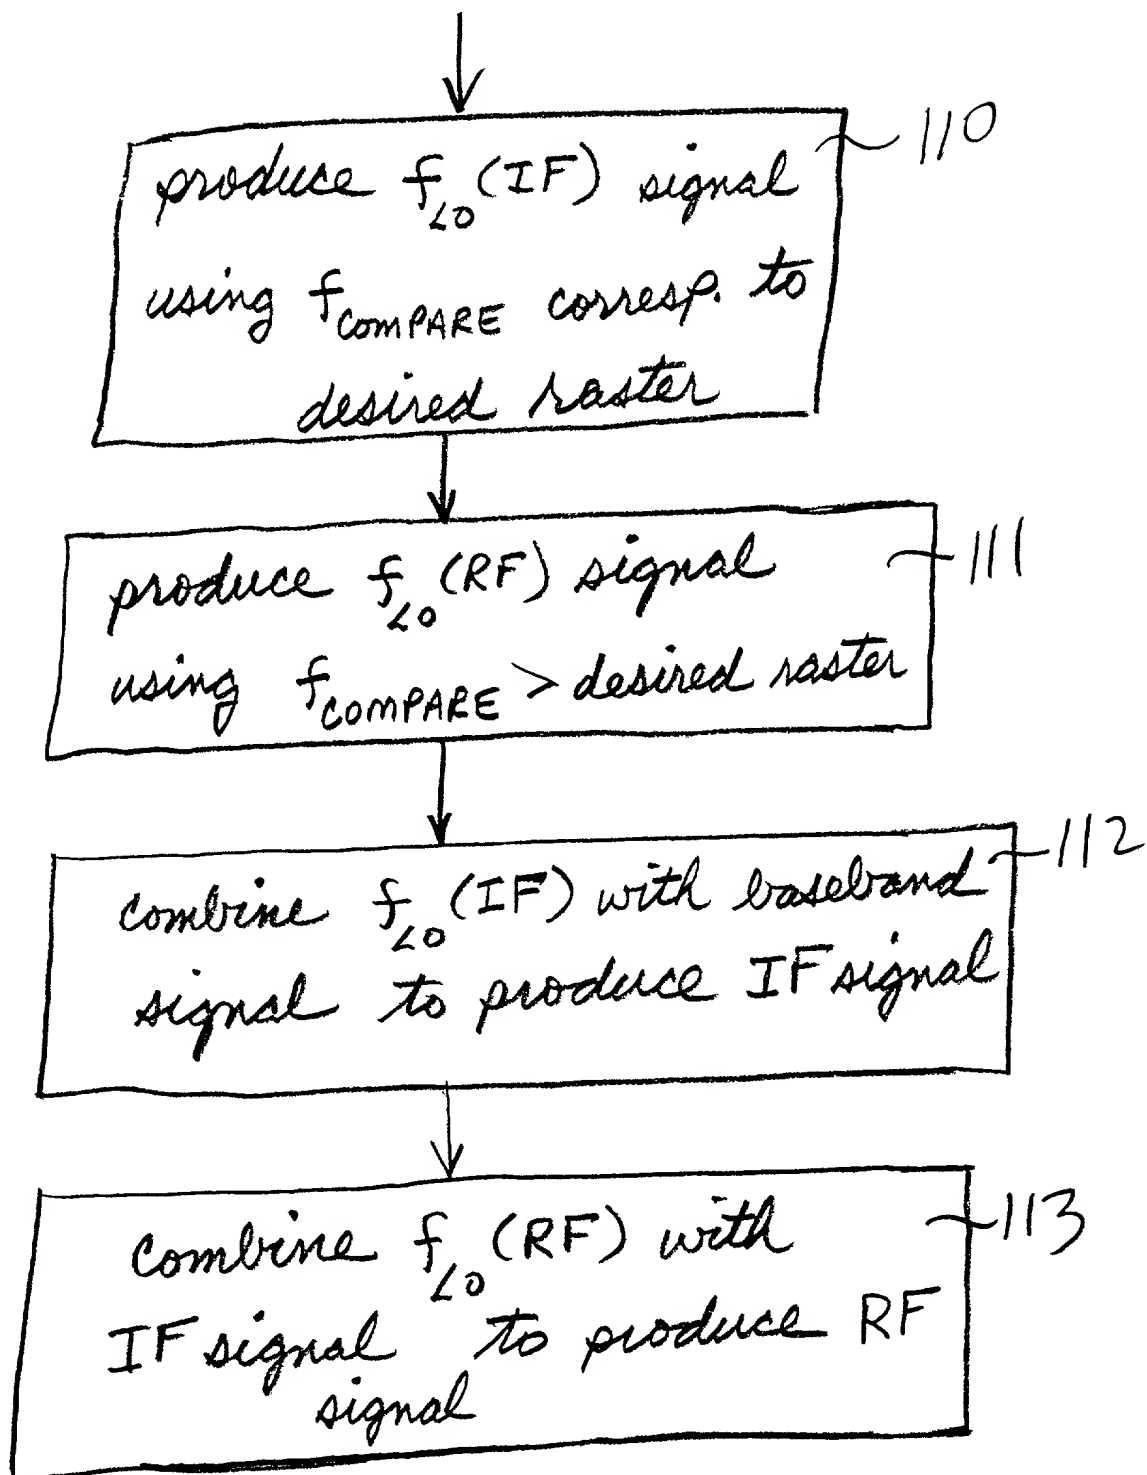 110
produce f_LO (IF) signal
using f_COMPARE corresp. to
desired raster
111
produce f_LO (RF) signal
using f_COMPARE > desired raster
112
combine f_LO (IF) with baseband
signal to produce IF signal
113
combine f_LO (RF) with
IF signal to produce RF
signal